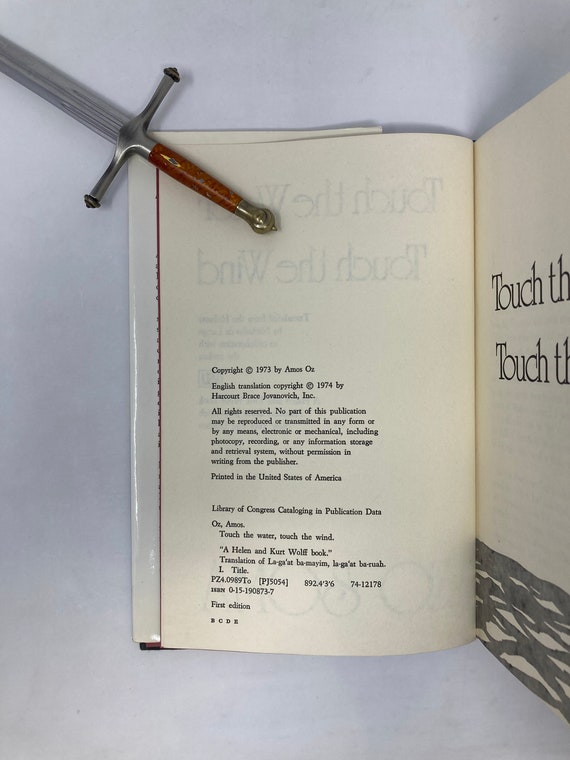 Copyright © 1973 by Amos Oz
English translation copyright © 1974 by
Harcourt Brace Jovanovich, Inc.
All rights reserved. No part of this publication
may be reproduced or transmitted in any form or
by any means, electronic or mechanical, including
photocopy, recording, or any information storage
and retrieval system, without permission in
writing from the publisher.
Printed in the United States of America
Library of Congress Cataloging in Publication Data
Oz, Amos.
Touch the water, touch the wind.
"A Helen and Kurt Wolff book."
Translation of La-ga'at ba-mayim, la-ga'at ba-ruah.
I. Title.
PZ4.0989To [PJ5054] 892.4'3'6 74-12178
ISBN 0-15-190873-7
First edition
B C D E
Touch th
Touch th